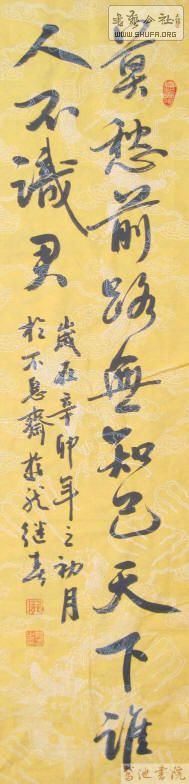 莫愁前路無知己天下誰
人不識君
歲在辛卯年之初月
於不息齋 继春
書法公社
WWW.SHUFA.ORG
墨池書院